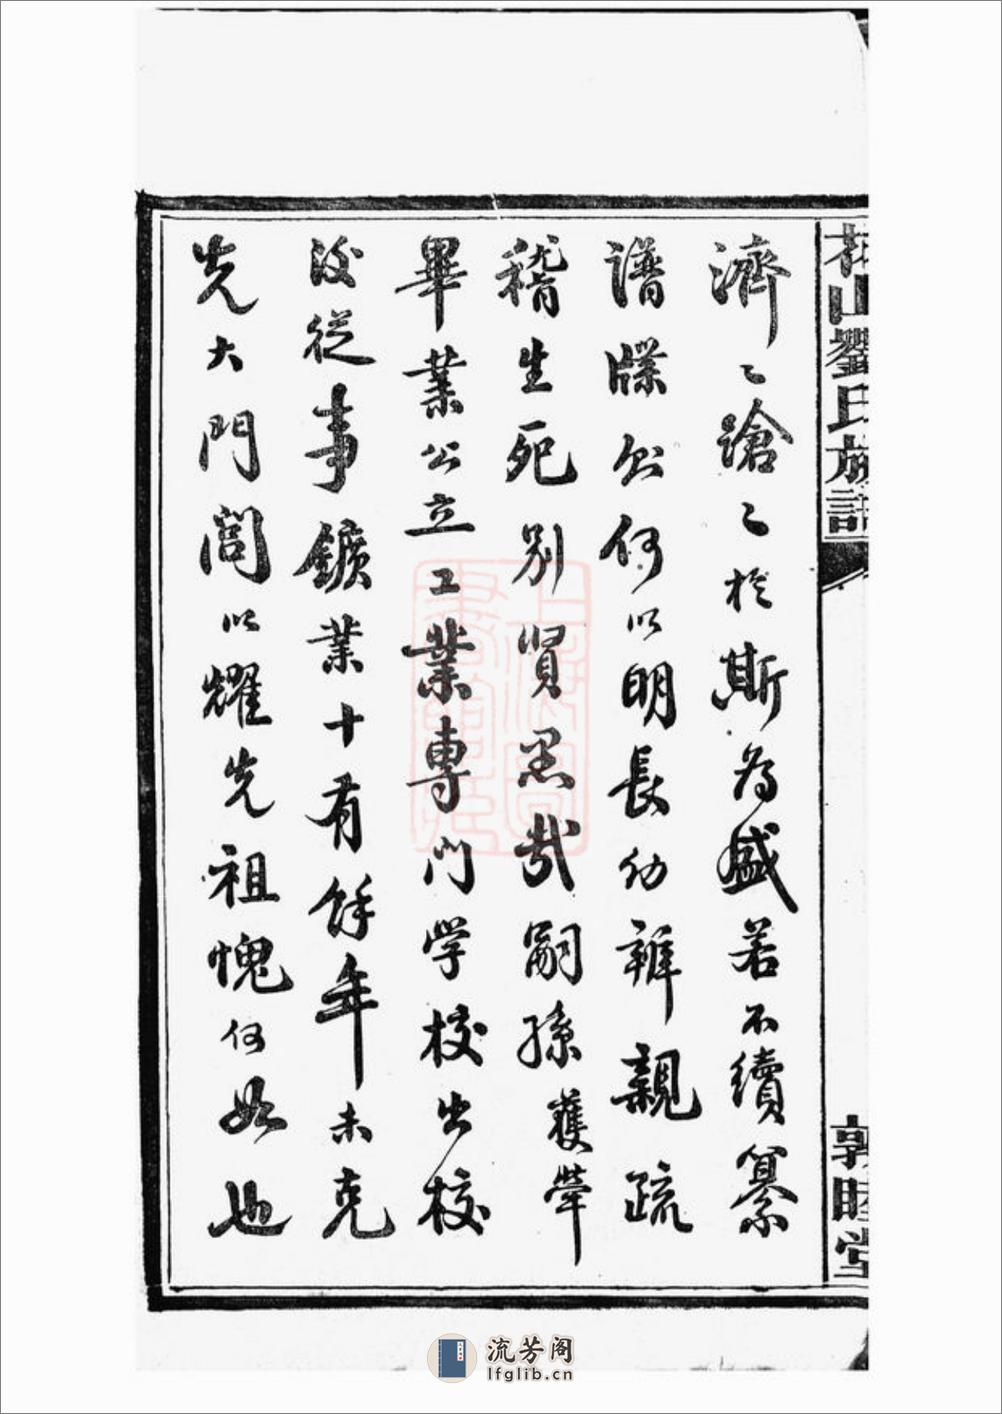 山劉氏族譜
敦睦堂
濟〻蹌〻於斯為盛若不續纂
譜牒則何以明長幼辨親疏
稽生死別賢愚哉嗣孫獲
畢業公立工業專門学校出校
後從事鑛業十有餘年未克
光大門閭以耀先祖愧何如也
上海圖書館藏
流芳阁
lfglib.cn